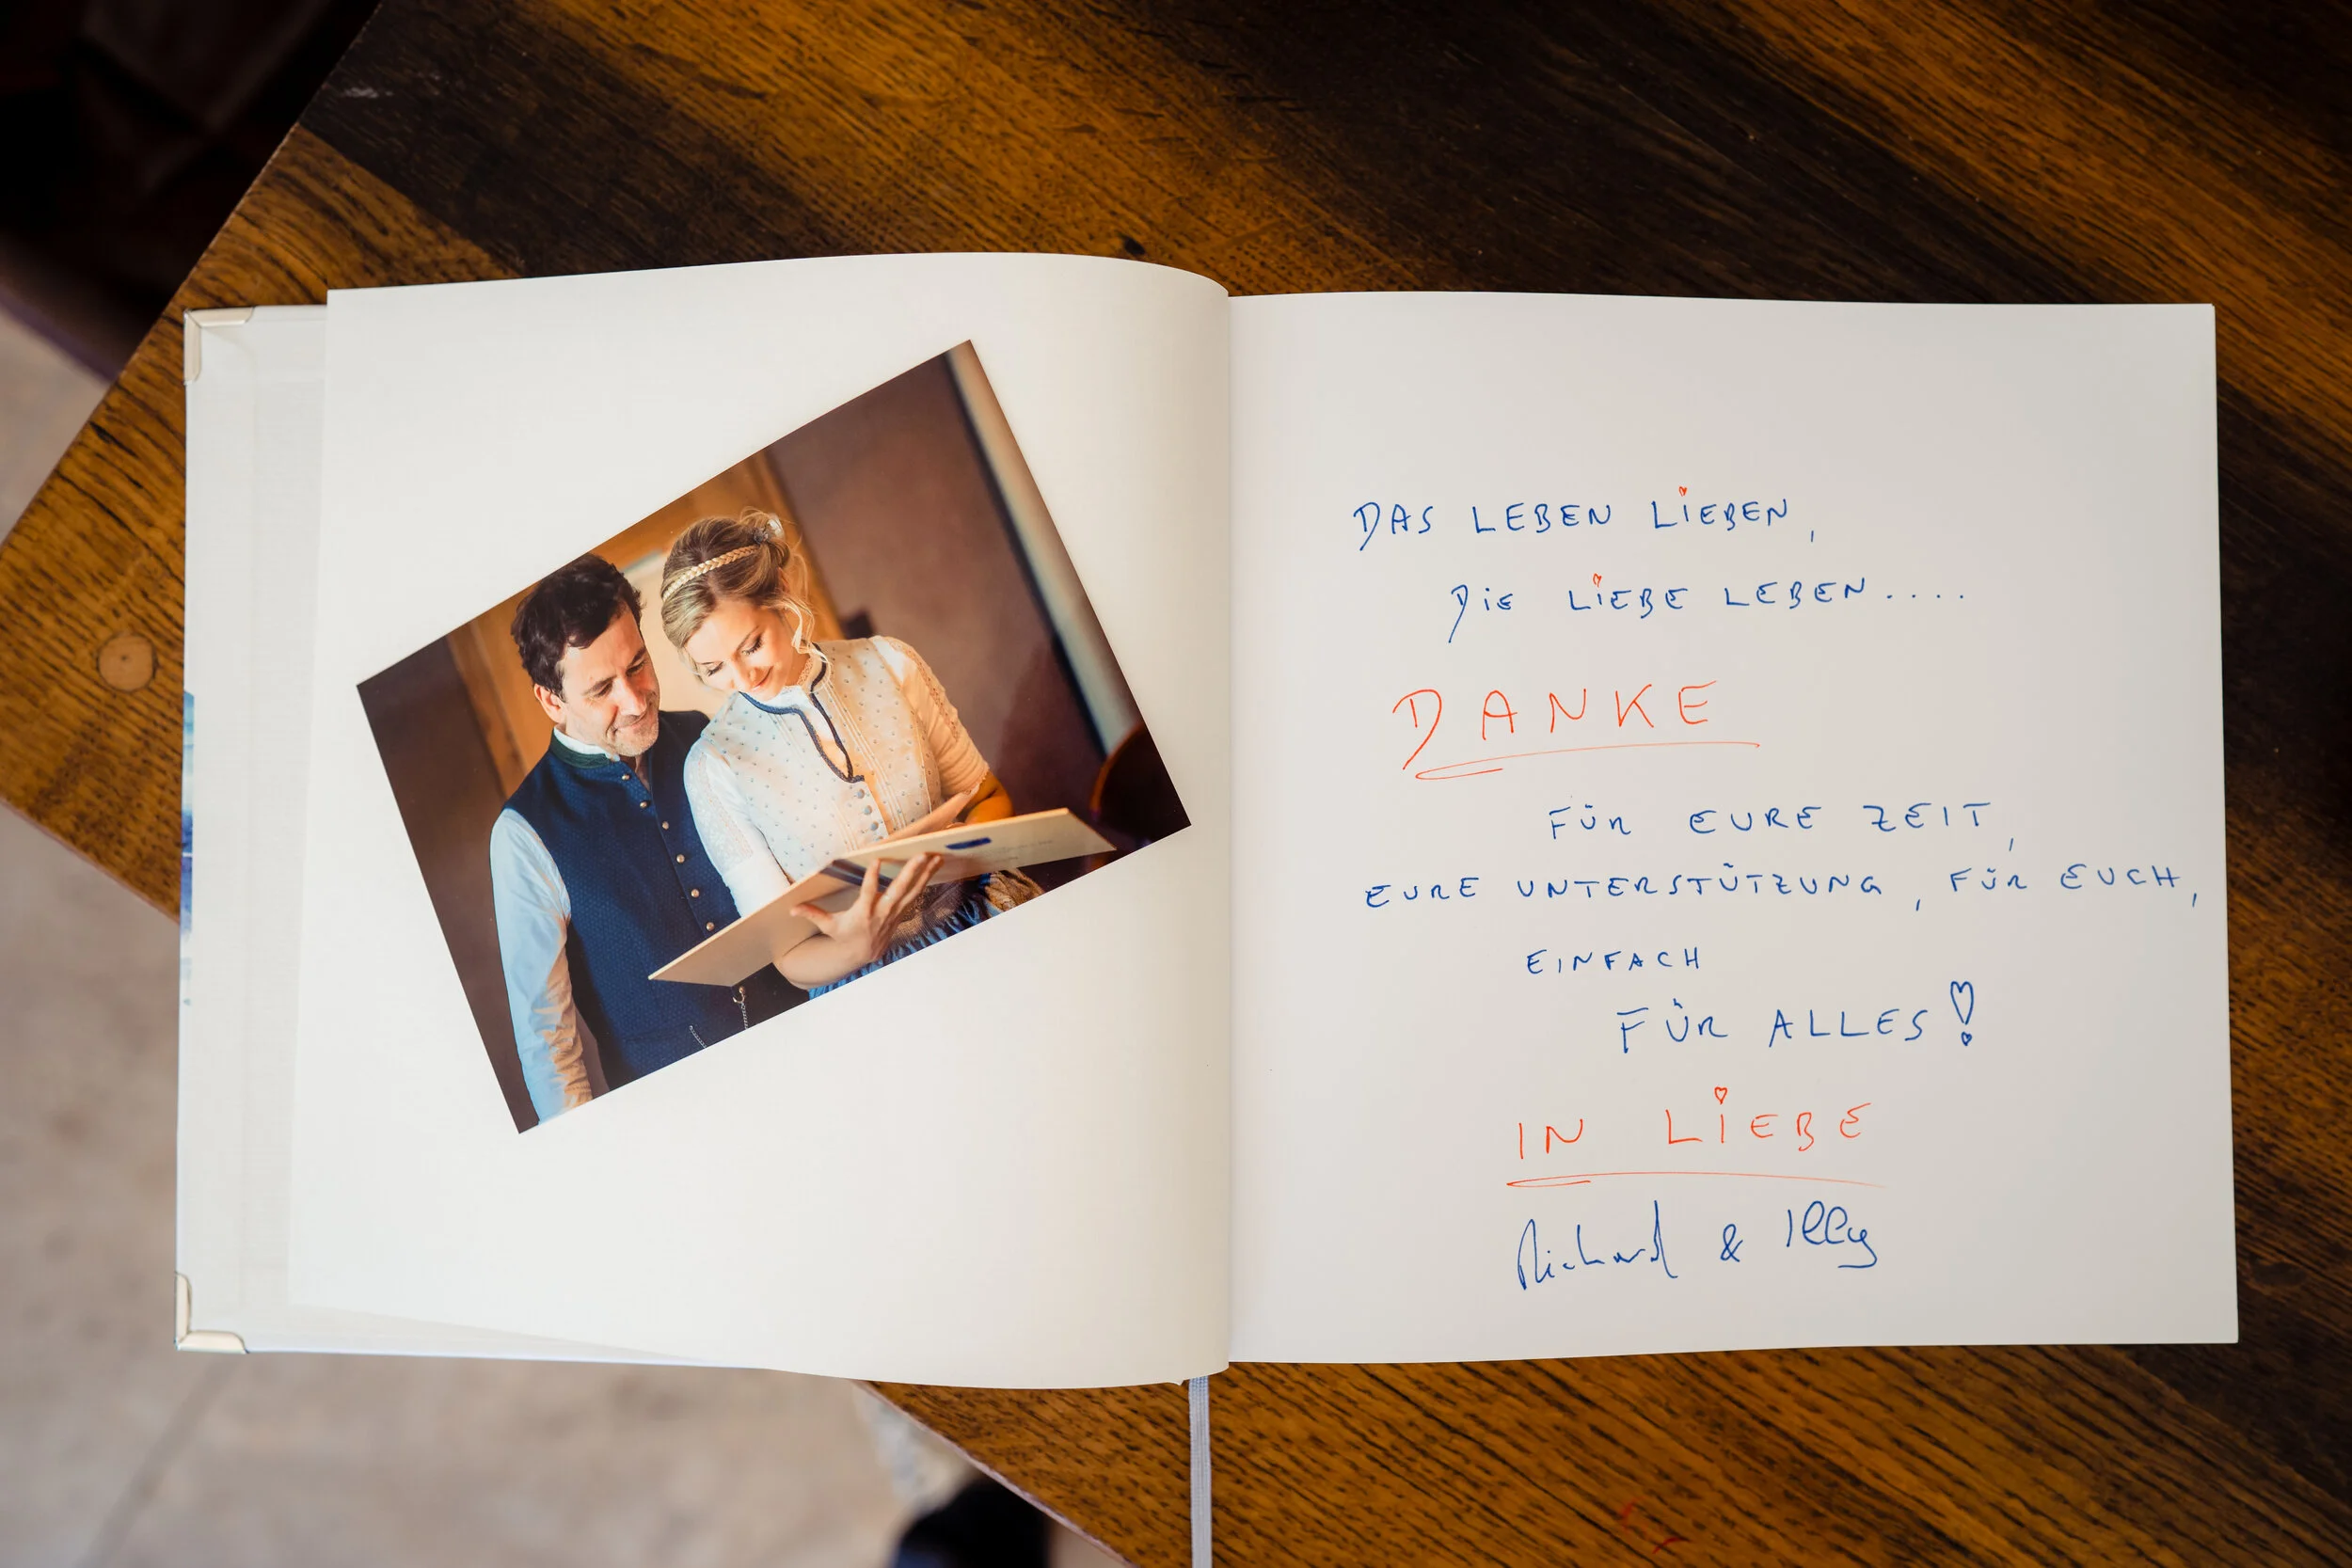 DAS LEBEN LiEBEN,
DiE LiEBE LEBEN....
DANKE
FÜR EURE ZEIT,
EURE UNTERSTÜTZUNG, FÜR EUCH,
EINFACH
FÜR ALLES!
IN LiEBE
Richard & Illy